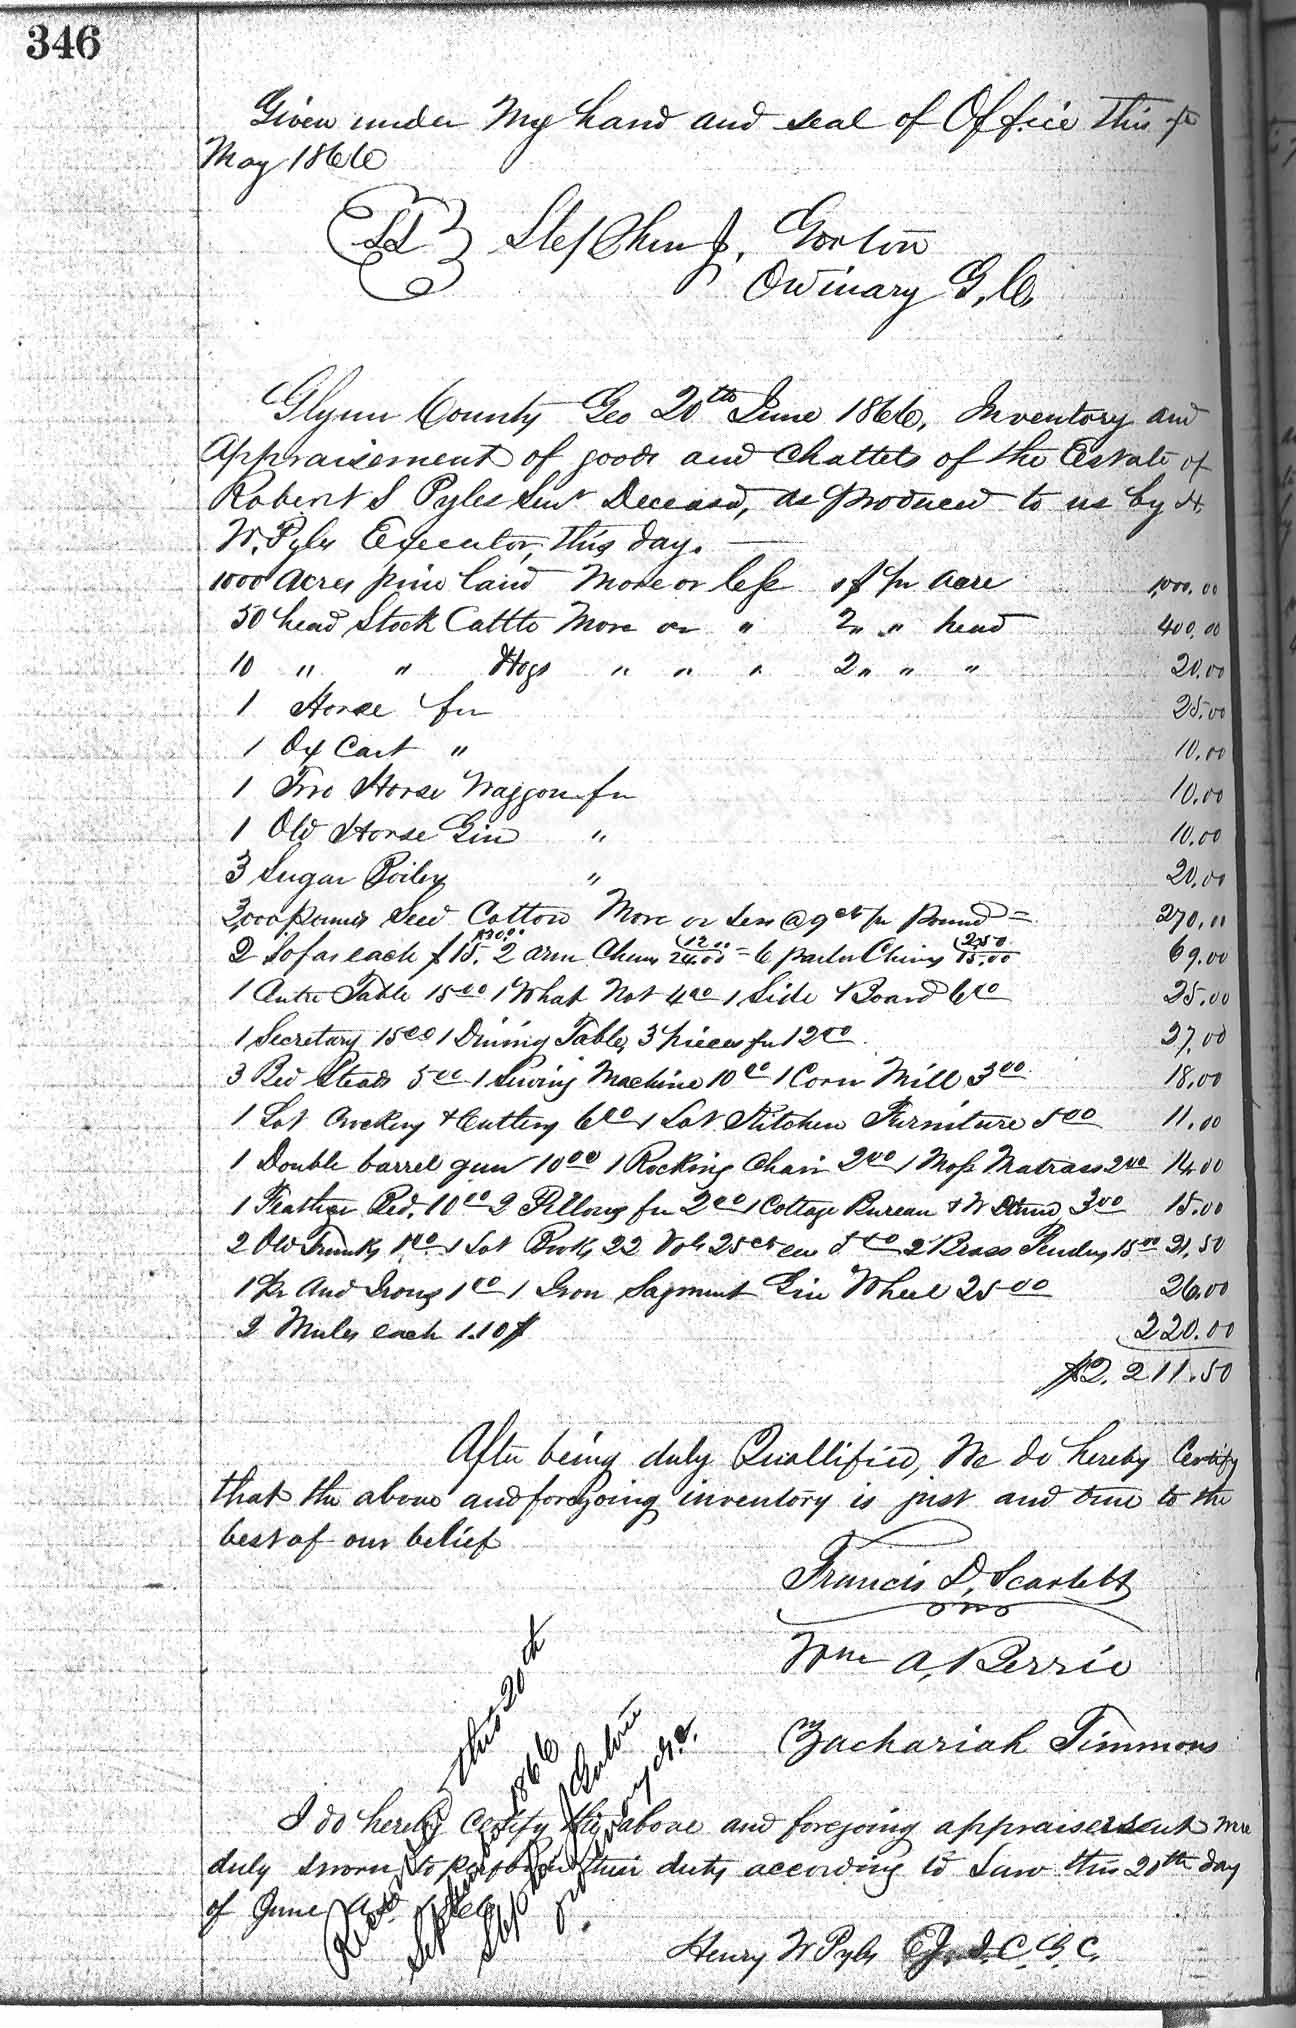 346
Given under My hand and seal of Office this
May 1866
LS Stephen J. Gorton
Ordinary G. C.
Glynn County Geo 20th June 1866, Inventory and
Appraisement of goods and Chattels of the Estate of
Robert S Pyles Senr Deceasd, as produced to us by H.
W. Pyles Executor, this day.
1000 Acres pine land More or less 1$ pr Acre 1,000.00
50 head Stock Cattle More or " " " head 400.00
10 " " Hogs " " " 2 " " " 20.00
1 Horse for 25.00
1 Ox Cart " 10.00
1 Two Horse Waggon for 10.00
1 Old Horse Gin " 10.00
3 Sugar Boilers " 20.00
3,000 pounds Seed Cotton More or less @ 9cts pr pound = 270.00
2 Sofas each $15. 30.00 2 arm Chairs 12.00 24.00 = 6 parlor Chairs 2.50 15.00 69.00
1 Centre Table 15.00 1 What Not 4.00 1 Side Board 6.00 25.00
1 Secretary 15.00 1 Dining Table, 3 pieces for 12.00 27.00
3 Bed Steads 5.00 1 Sewing Machine 10.00 1 Corn Mill 3.00 18.00
1 Lot Crockery & Cutlery 6.00 1 Lot Kitchen Furniture 5.00 11.00
1 Double barrel gun 10.00 1 Rocking Chair 2.00 1 Moss Matrass 2.00 14.00
1 Feather Bed. 10.00 2 Pillows for 2.00 1 Cottage Bureau & W Stand 3.00 15.00
2 Old Trunks 1.00 1 Lot Books 22 Vols 25cts ea 2 Brass Fenders 15.00 21.50
1 Pr And Irons 1.00 1 Iron Sagment Gin Wheel 25.00 26.00
2 Mules each 1.10$ 220.00
$2.211.50
After being duly Quallified, We do hereby Certify
that the above and foregoing inventory is just and true to the
best of our belief
Francis D. Scarlett
Wm A. Berrie
Zachariah Timmons
I do hereby Certify the above and foregoing appraisers were
duly sworn to perform their duty according to Law this 20th day
of June A.D. 1866
Henry W Pyles J. I. C. G. C.
Recorded this 20th
September 1866
Stephen J Gorton
Ordinary G.C.